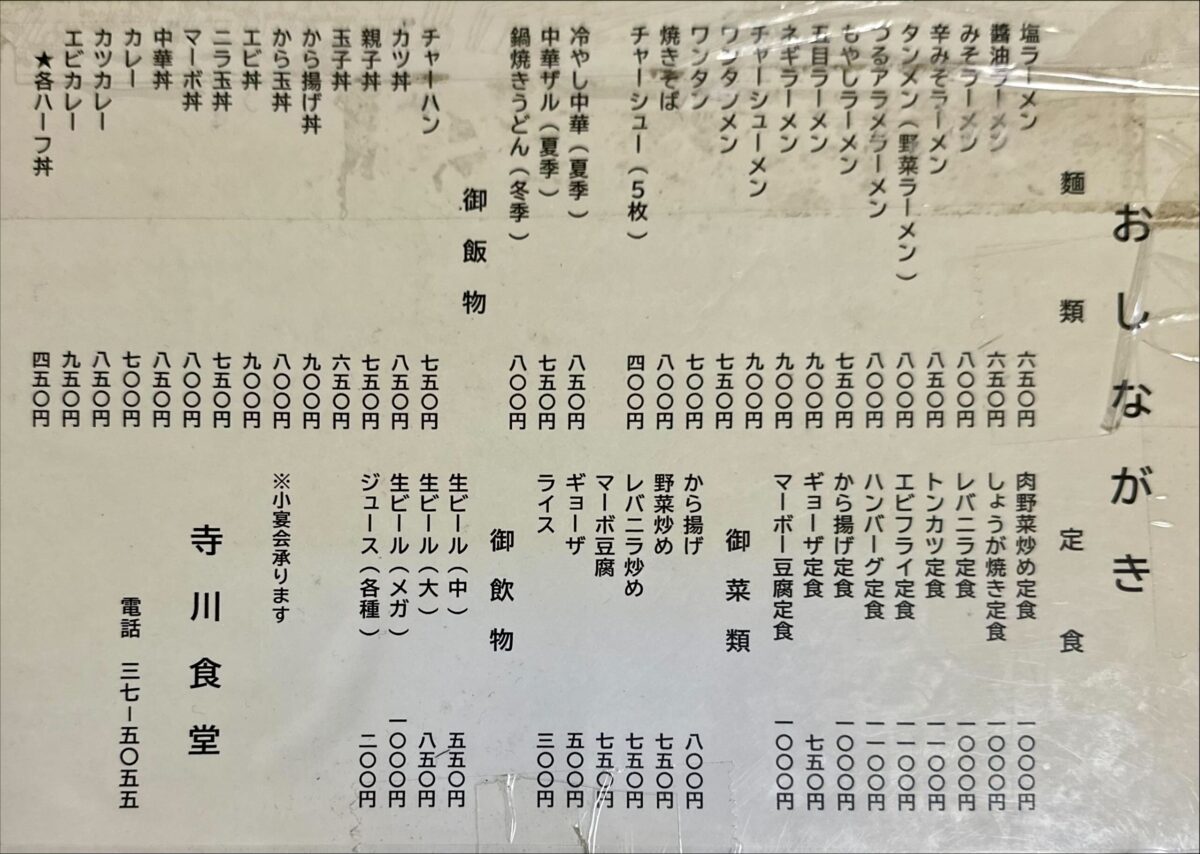 おしながき
麺類
塩ラーメン 六五〇円
醬油ラーメン 六五〇円
みそラーメン 八〇〇円
辛みそラーメン 八五〇円
タンメン(野菜ラーメン) 八〇〇円
つるアラメラーメン 八〇〇円
もやしラーメン 七五〇円
五目ラーメン 九〇〇円
ネギラーメン 九〇〇円
チャーシューメン 九〇〇円
ワンタンメン 七五〇円
ワンタン 七〇〇円
焼きそば 八〇〇円
チャーシュー(5枚) 四〇〇円
冷やし中華(夏季) 八五〇円
中華ザル(夏季) 七五〇円
鍋焼きうどん(冬季) 八〇〇円
御飯物
チャーハン 七五〇円
カツ丼 八五〇円
親子丼 七五〇円
玉子丼 六五〇円
から揚げ丼 九〇〇円
から玉丼 八〇〇円
エビ丼 九〇〇円
ニラ玉丼 七五〇円
マーボ丼 八〇〇円
中華丼 八五〇円
カレー 七〇〇円
カツカレー 八五〇円
エビカレー 九五〇円
★各ハーフ丼 四五〇円
定食
肉野菜炒め定食 一〇〇〇円
しょうが焼き定食 一〇〇〇円
レバニラ定食 一〇〇〇円
トンカツ定食 一一〇〇円
エビフライ定食 一一〇〇円
ハンバーグ定食 一一〇〇円
から揚げ定食 一〇〇〇円
ギョーザ定食 七五〇円
マーボー豆腐定食 一〇〇〇円
御菜類
から揚げ 八〇〇円
野菜炒め 七五〇円
レバニラ炒め 七五〇円
マーボ豆腐 七五〇円
ギョーザ 五〇〇円
ライス 三〇〇円
御飲物
生ビール(中) 五五〇円
生ビール(大) 八五〇円
生ビール(メガ) 一〇〇〇円
ジュース(各種) 二〇〇円
※小宴会承ります
寺川食堂
電話 三七ー五〇五五